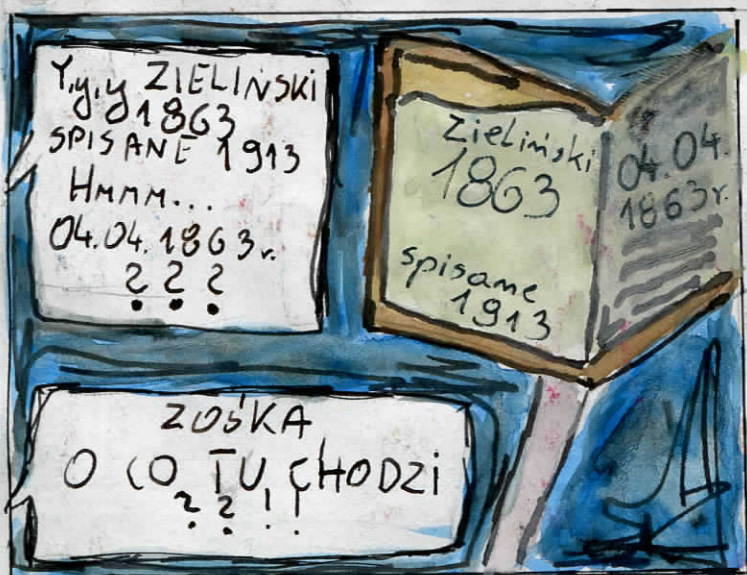 Y,y,y ZIELIŃSKI
1863
SPISANE 1913
HMMM...
04.04.1863r.
???
Zieliński
1863
spisane
1913
04.04.
1863r.
ZOŚKA
O CO TU CHODZI
??!!